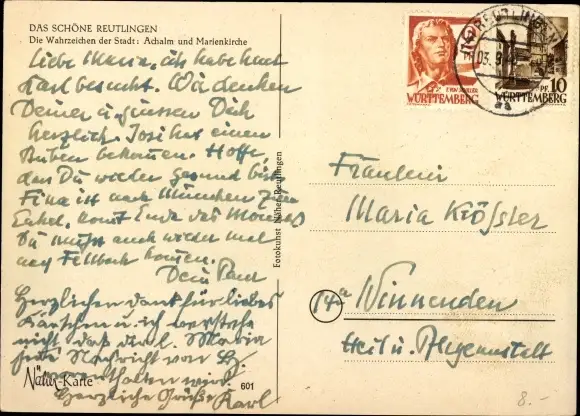 DAS SCHÖNE REUTLINGEN
Die Wahrzeichen der Stadt: Achalm und Marienkirche
Liebe Maria, ich habe heut
Karl besucht. Wir denken
Deiner u. grüssen Dich
herzlich. Josi hat einen
Buben bekommen. Hoffe
das Du wieder gesund bist
Fina ist nach München zum
Enkel, kommt Ende des Monats
Du mußt auch wieder mal
nach Fellbach kommen.
Dein Paul
Herzlichen Dank für liebes
Kärtchen u. ich verstehe
nicht daß Frl. Maria
Nachricht von
erhalten wird.
Herzliche Grüße Karl
Näher-Karte
601
Fotokunst Näher Reutlingen
F. VON SCHILLER
WÜRTTEMBERG
REUTLINGEN
03. 9. 48
PF 10
WÜRTTEMBERG
Fräulein
Maria Krößler
14a Winnenden
Heil u. Pflegeanstalt
8.-